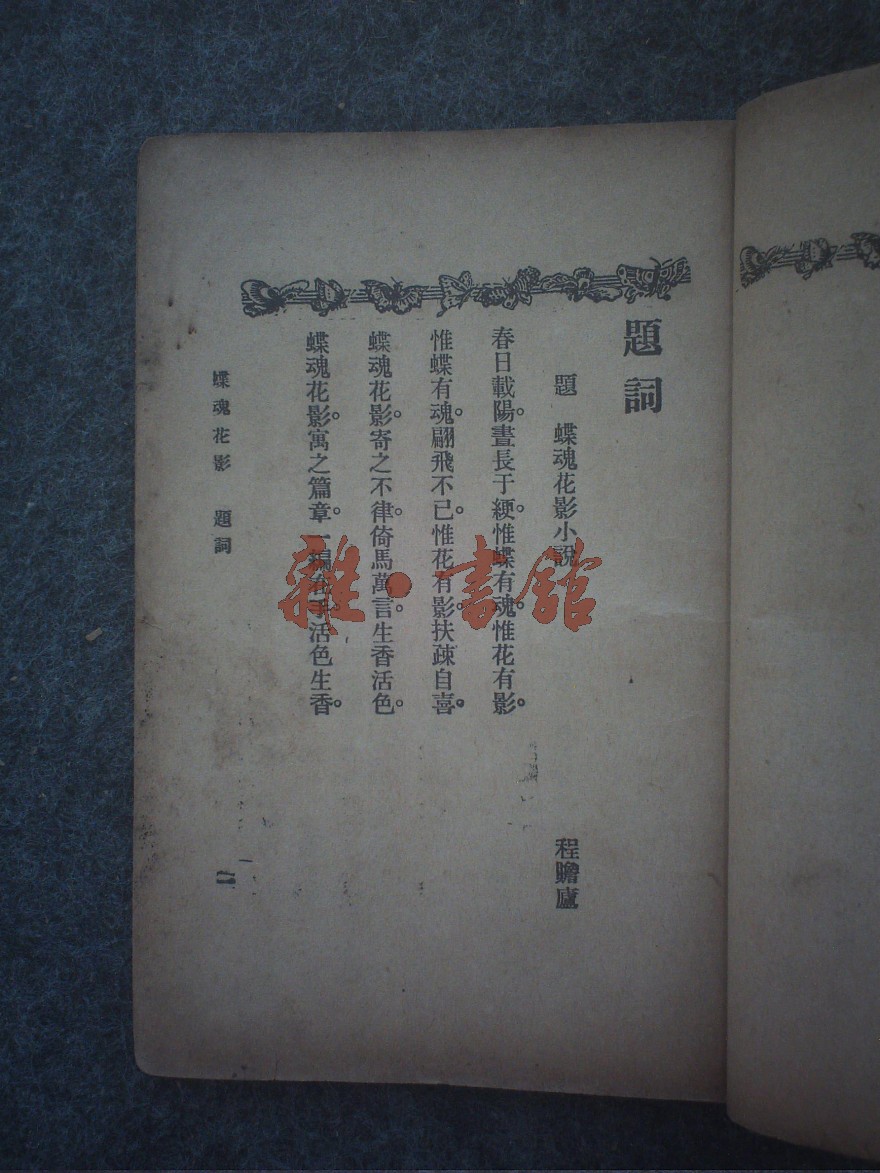 題詞
題 蝶魂花影小說 程瞻廬
春日載陽。晝長于綆。惟蝶有魂。惟花有影。
惟蝶有魂。翩飛不已。惟花有影。扶疎自喜。
蝶魂花影。寄之不律。倚馬萬言。生香活色。
蝶魂花影。寓之篇章。一編在手。活色生香。
蝶魂花影 題詞
二
雜·書館